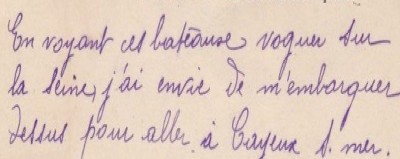 En voyant ces bateaux voguer sur
la Seine, j'ai envie de m'embarquer
dessus pour aller à Cayeux s. mer.